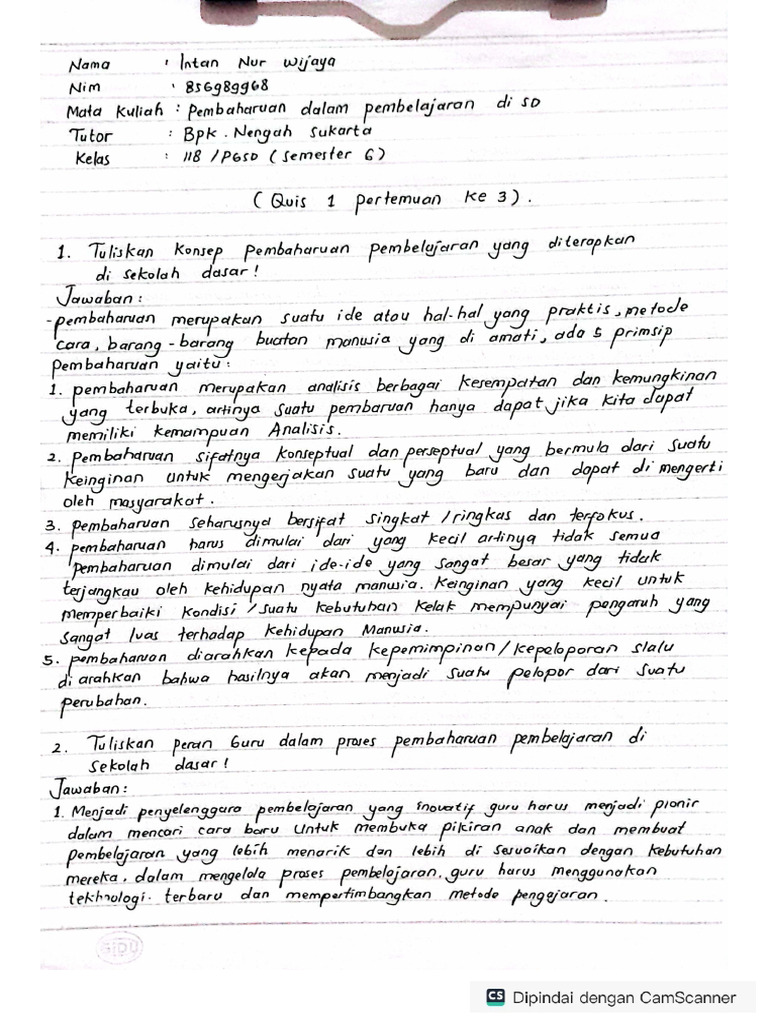 Nama : Intan Nur Wijaya
Nim : 856989968
Mata Kuliah : Pembaharuan dalam pembelajaran di SD
Tutor : Bpk. Nengah Sukarta
Kelas : 118 / PGSD ( Semester 6 )
( Quis 1 pertemuan ke 3 ).
1. Tuliskan Konsep Pembaharuan Pembelajaran yang diterapkan
di sekolah dasar !
Jawaban :
- pembaharuan merupakan suatu ide atau hal-hal yang praktis, metode
cara, barang - barang buatan manusia yang di amati, ada 5 primsip
Pembaharuan yaitu :
1. pembaharuan merupakan analisis berbagai kesempatan dan kemungkinan
yang terbuka, artinya suatu pembaruan hanya dapat jika kita dapat
memiliki kemampuan Analisis.
2. Pembaharuan sifatnya konseptual dan perseptual yang bermula dari suatu
keinginan untuk mengerjakan suatu yang baru dan dapat di mengerti
oleh masyarakat.
3. pembaharuan seharusnya bersifat singkat / ringkas dan terfokus.
4. pembaharuan harus dimulai dari yang kecil artinya tidak semua
pembaharuan dimulai dari ide-ide yang sangat besar yang tidak
terjangkau oleh kehidupan nyata manusia. Keinginan yang kecil untuk
memperbaiki kondisi / suatu kebutuhan kelak mempunyai pengaruh yang
sangat luas terhadap kehidupan Manusia.
5. pembaharuan diarahkan kepada kepemimpinan / kepeloporan slalu
di arahkan bahwa hasilnya akan menjadi suatu pelopor dari suatu
perubahan.
2. Tuliskan peran Guru dalam proses pembaharuan pembelajaran di
sekolah dasar !
Jawaban :
1. Menjadi penyelenggara pembelajaran yang inovatif guru harus menjadi pionir
dalam mencari cara baru untuk membuka pikiran anak dan membuat
pembelajaran yang lebih menarik dan lebih di sesuaikan dengan kebutuhan
mereka, dalam mengelola proses pembelajaran, guru harus menggunakan
tekhnologi. terbaru dan mempertimbangkan metode pengajaran.
SIDU
CS Dipindai dengan CamScanner